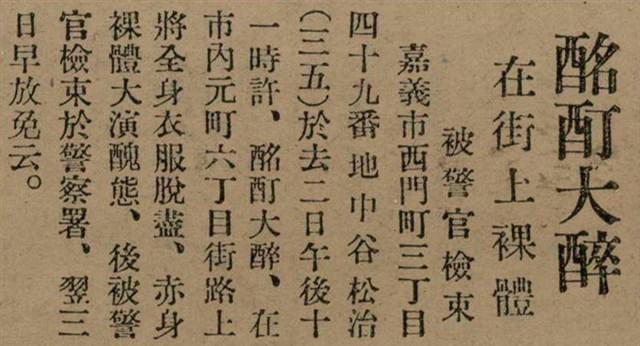 酩酊大醉
在街上裸體
被警官檢束
嘉義市西門町三丁目
四十九番地中谷松治
(三五)於去二日午後十
一時許、酩酊大醉、在
市內元町六丁目街路上
將全身衣服脫盡、赤身
裸體大演醜態、後被警
官檢束於警察署、翌三
日早放免云。